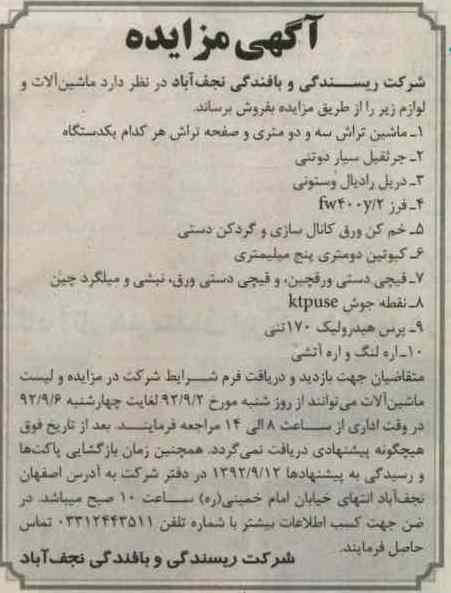 آگهی مزایده
شرکت ریسندگی و بافندگی نجف‌آباد در نظر دارد ماشین‌آلات و
لوازم زیر را از طریق مزایده بفروش برساند.
۱ـ ماشین تراش سه و دو متری و صفحه تراش هر کدام یکدستگاه
۲ـ جرثقیل سیار دوتنی
۳ـ دریل رادیال وستونی
۴ـ فرز fw۴۰۰y/۲
۵ـ خم کن ورق کانال سازی و گردکن دستی
۶ـ گیوتین دومتری پنج میلیمتری
۷ـ قیچی دستی ورقچین، و قیچی دستی ورق، نبشی و میلگرد چین
۸ـ نقطه جوش ktpuse
۹ـ پرس هیدرولیک ۱۷۰تنی
۱۰ـ اره لنگ و اره آتشی
متقاضیان جهت بازدید و دریافت فرم شرایط شرکت در مزایده و لیست
ماشین‌آلات می‌توانند از روز شنبه مورخ ۹۲/۹/۲ لغایت چهارشنبه ۹۲/۹/۶
در وقت اداری از ساعت ۸ الی ۱۴ مراجعه فرمایند. بعد از تاریخ فوق
هیچگونه پیشنهادی دریافت نمی‌گردد. همچنین زمان بازگشایی پاکت‌ها
و رسیدگی به پیشنهادها ۱۳۹۲/۹/۱۲ در دفتر شرکت به آدرس اصفهان
نجف‌آباد انتهای خیابان امام خمینی(ره) ساعت ۱۰ صبح میباشد. در
ضن جهت کسب اطلاعات بیشتر با شماره تلفن ۰۳۳۱۲۴۴۳۵۱۱ تماس
حاصل فرمایند.
شرکت ریسندگی و بافندگی نجف‌آباد